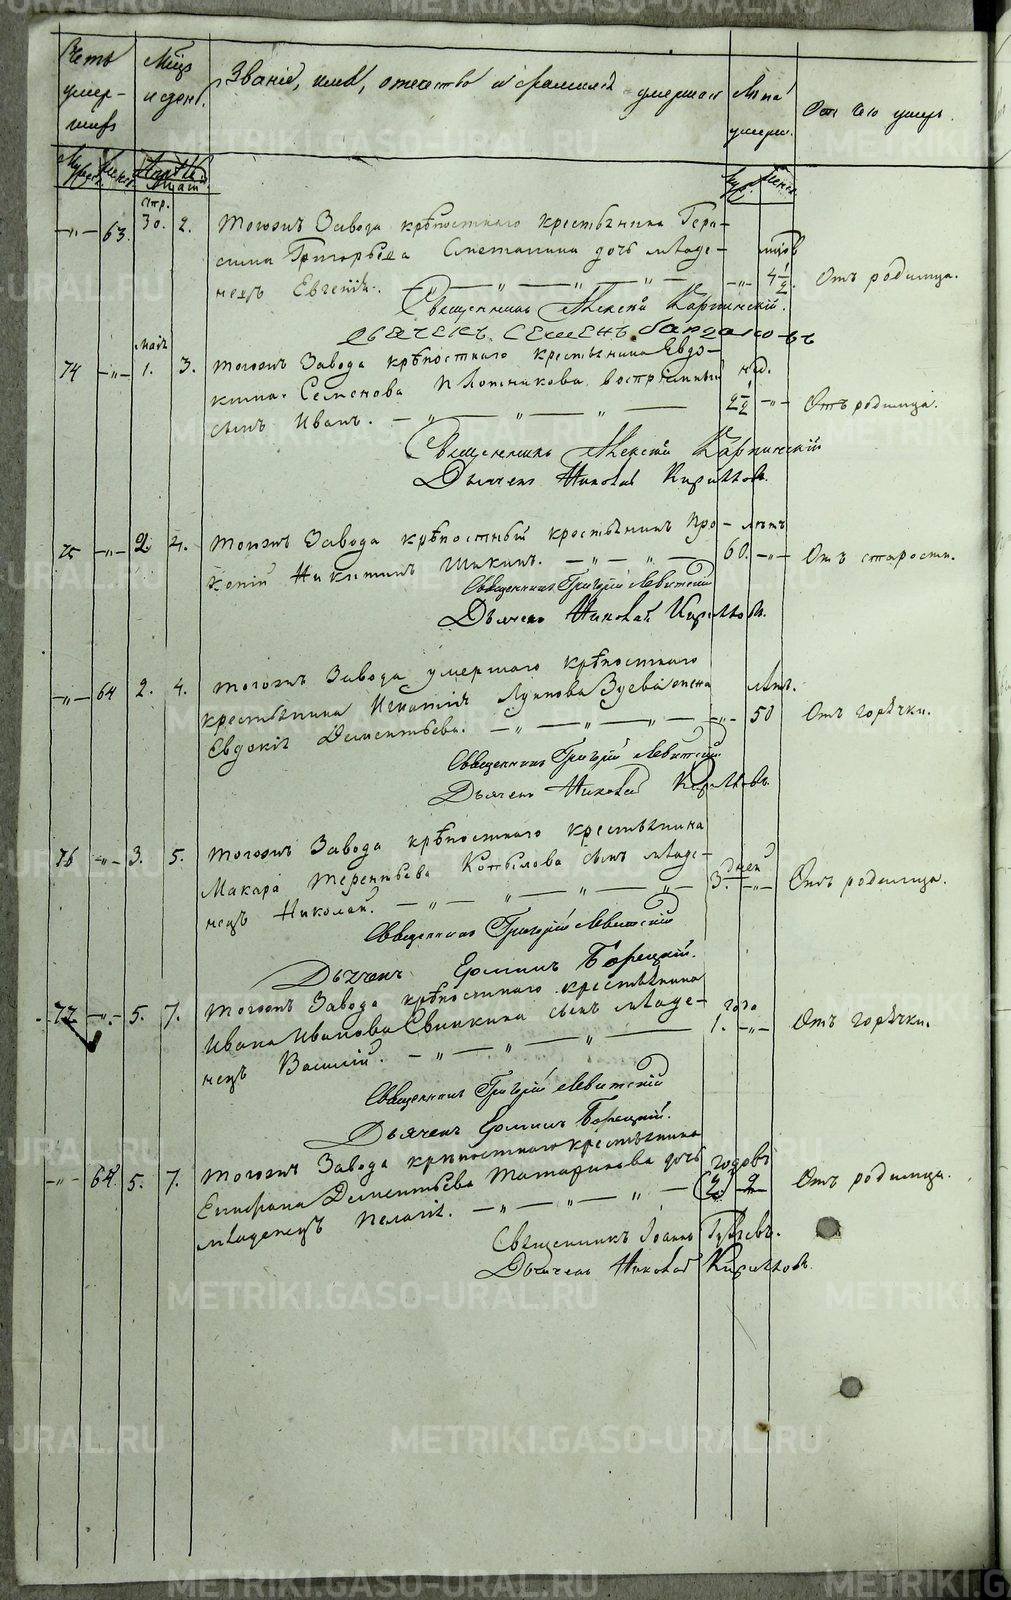 METRIKI.GASO-URAL.RU
Счетъ умер-шихъ
Мѣсяцъ и день.
Званіе, имя, отчество и фамилія умершаго
Лѣта умерш.
Отъ чего умеръ.
Муж. Женс.
Муж. Женс.
Апр.
-„- 63. 30. 2. Тогожъ Завода крѣпостнаго крестьянина Гера-
сима Григорьева Сметанина дочь младе- мцов
нецъ Евгенія. -„- 4 1/2. Отъ родимца.
Священникъ Алексій Карпинскій.
Дьячекъ Семенъ
Маія
74 -„- 1. 3. Тогожъ Завода крѣпостнаго крестьянина Евдо- нед.
кима Семенова Плотникова воспріимный
сынъ Иванъ. 2 1/2 -„- Отъ родимца.
Священникъ Алексій Карпинскій
Дьячекъ Николай Кирилловъ.
75 -„- 2. 4. Тогожъ Завода крѣпостный крестьянинъ Про- лѣтъ
копій Никитинъ Шикинъ. 60. -„- Отъ старости.
Священникъ Григорій Левитскій
Дьячекъ Николай Кирилловъ.
-„- 64 2. 4. Тогожъ Завода умершаго крѣпостнаго
крестьянина Игнатія Лукиова Зуева жена лѣтъ.
Евдокія Дементьева. -„- 50 Отъ горячки.
Священникъ Григорій Левитскій
Дьячекъ Николай Кирилловъ.
76 -„- 3. 5. Тогожъ Завода крѣпостнаго крестьянина
Макара Терентьева Копылова сынъ младе- дней
нецъ Николай. 3. -„- Отъ родимца.
Священникъ Григорій Левитскій
Дьячекъ Ермилъ Борецкій.
77 -„- 5. 7. Тогожъ Завода крѣпостнаго крестьянина
Ивана Иванова Свинкина сынъ младе- года
нецъ Василій. 1. -„- Отъ горячки.
Священникъ Григорій Левитскій
Дьячекъ Ермилъ Борецкій.
-„- 64. 5. 7. Тогожъ Завода крѣпостнаго крестьянина
Епифана Дементьева Татаринова дочь годовъ
младенецъ Пелагія. 2 Отъ родимца.
Священникъ Іоаннъ
Дьячекъ Николай Кирилловъ.